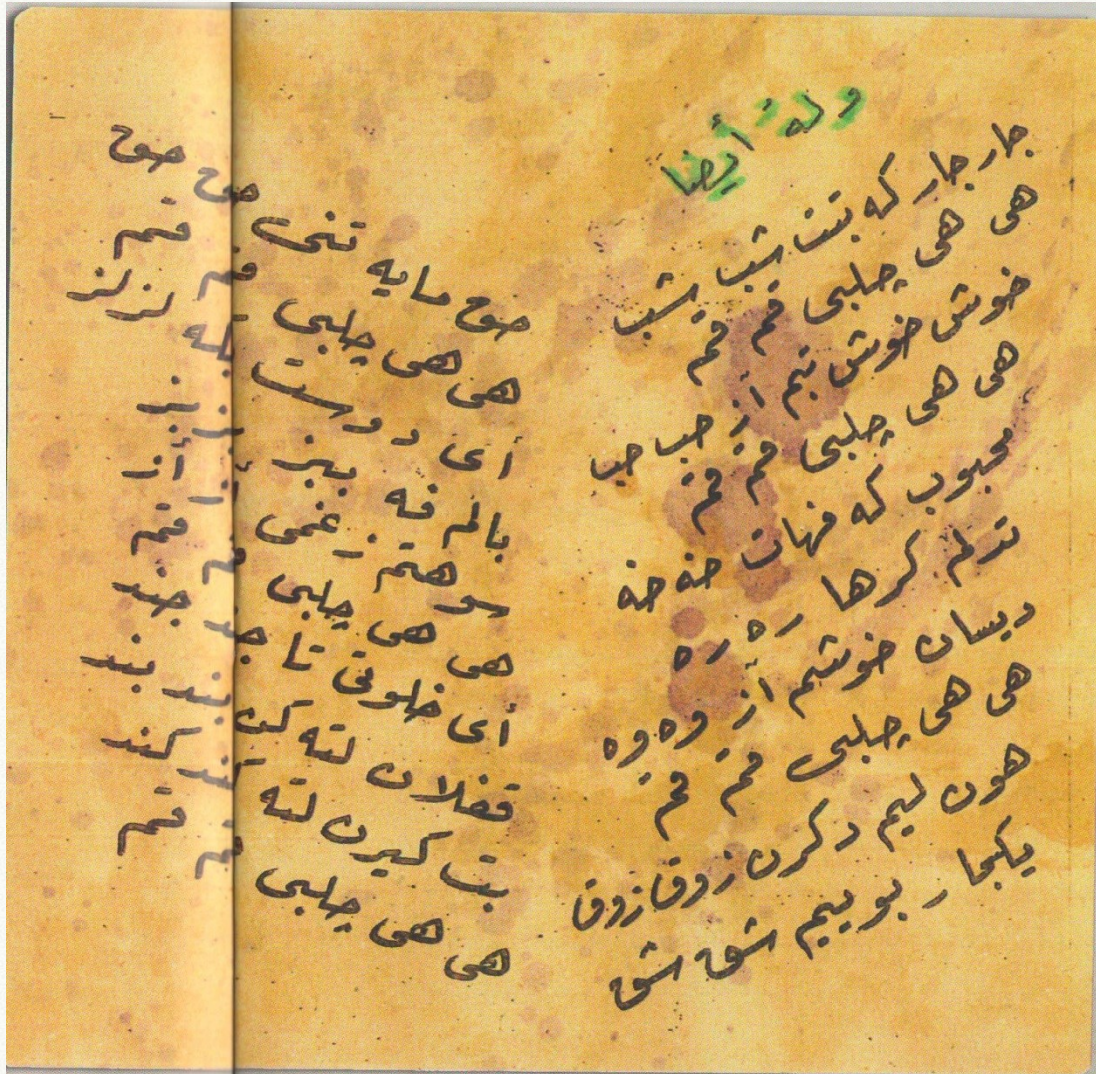 وله أيضا
جار جار كه بتت شب شب
هى هى چلبى قم قم
خوش خوش تيم أز حب حب
هى هى چلبى قم قم
محبوب كه فهات خه خه
تدلم كرها ره ره
ديسان خوشم أز وه وه
هى هى چلبى قم قم
هون ليم دكرن زوق زوق
يكجار بوييم شق شق
صوح مايه تنى صوح صوح
هى هى چلبى قم قم
أى دوست بله لز لز
بالم فه ببز بز بز
سوهتم ز غمى أز أز
هى هى چلبى قم قم
أى خلوتى تا چند چند
قفلان لته كن بند بند
بت كيرن لته كند كند
هى هى چلبى قم قم